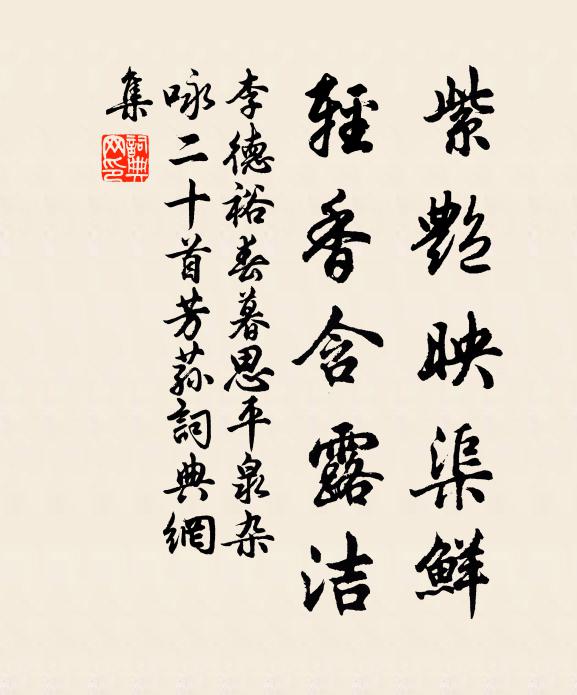 紫艷映渠鮮
輕香含露洁
李德裕春暮思平泉杂
咏二十首芳荪詞典網
集
詞典
网印